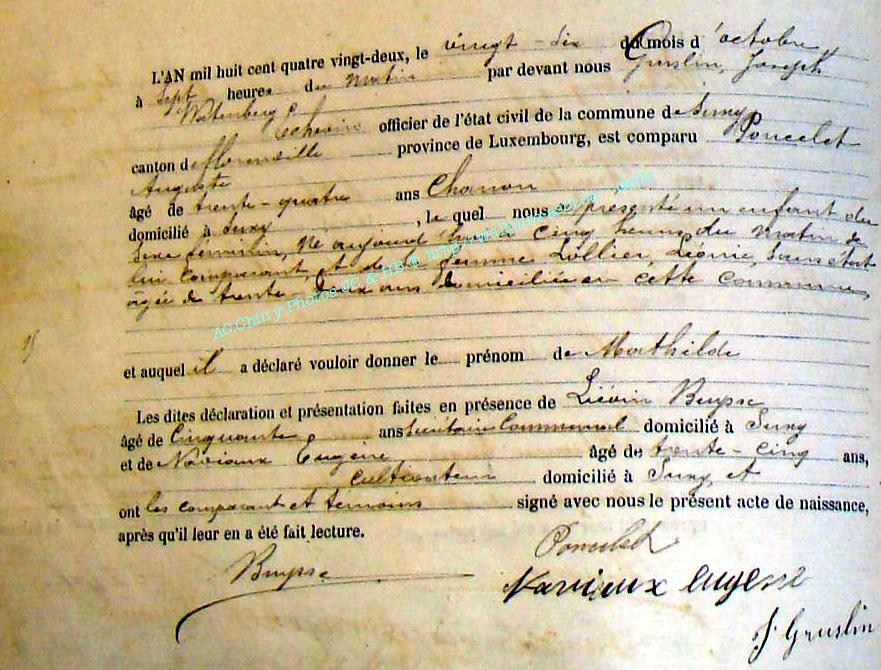 L'AN mil huit cent quatre vingt-deux, le vingt-six du mois d'octobre
à Sept heures du matin par devant nous Gruslin, Joseph
Watenberg Echevin officier de l'état civil de la commune de Suxy
canton de florenville province de Luxembourg, est comparu Poncelet
Auguste
âgé de trente-quatre ans
domicilié à Suxy, le quel nous a présenté un enfant du
Sexe féminin, né aujourd'hui à cinq heures du matin de
lui comparant, et de sa femme Lollier, Léonie, Sans état
agée de trente deux ans domiciliée en cette commune,
et auquel il a déclaré vouloir donner le prénom de Mathilde
Les dites déclaration et présentation faites en présence de Liévin Buysse
âgé de Cinquante ans Secrétaire Communal domicilié à Suxy
et de Naviaux Eugène âgé de trente-cinq ans,
cultivateur domicilié à Suxy et
ont les comparant et témoins signé avec nous le présent acte de naissance,
après qu'il leur en a été fait lecture.
Poncelet
Buysse
Naviaux eugene
J Gruslin
AC.Chiny Photos JC & HB